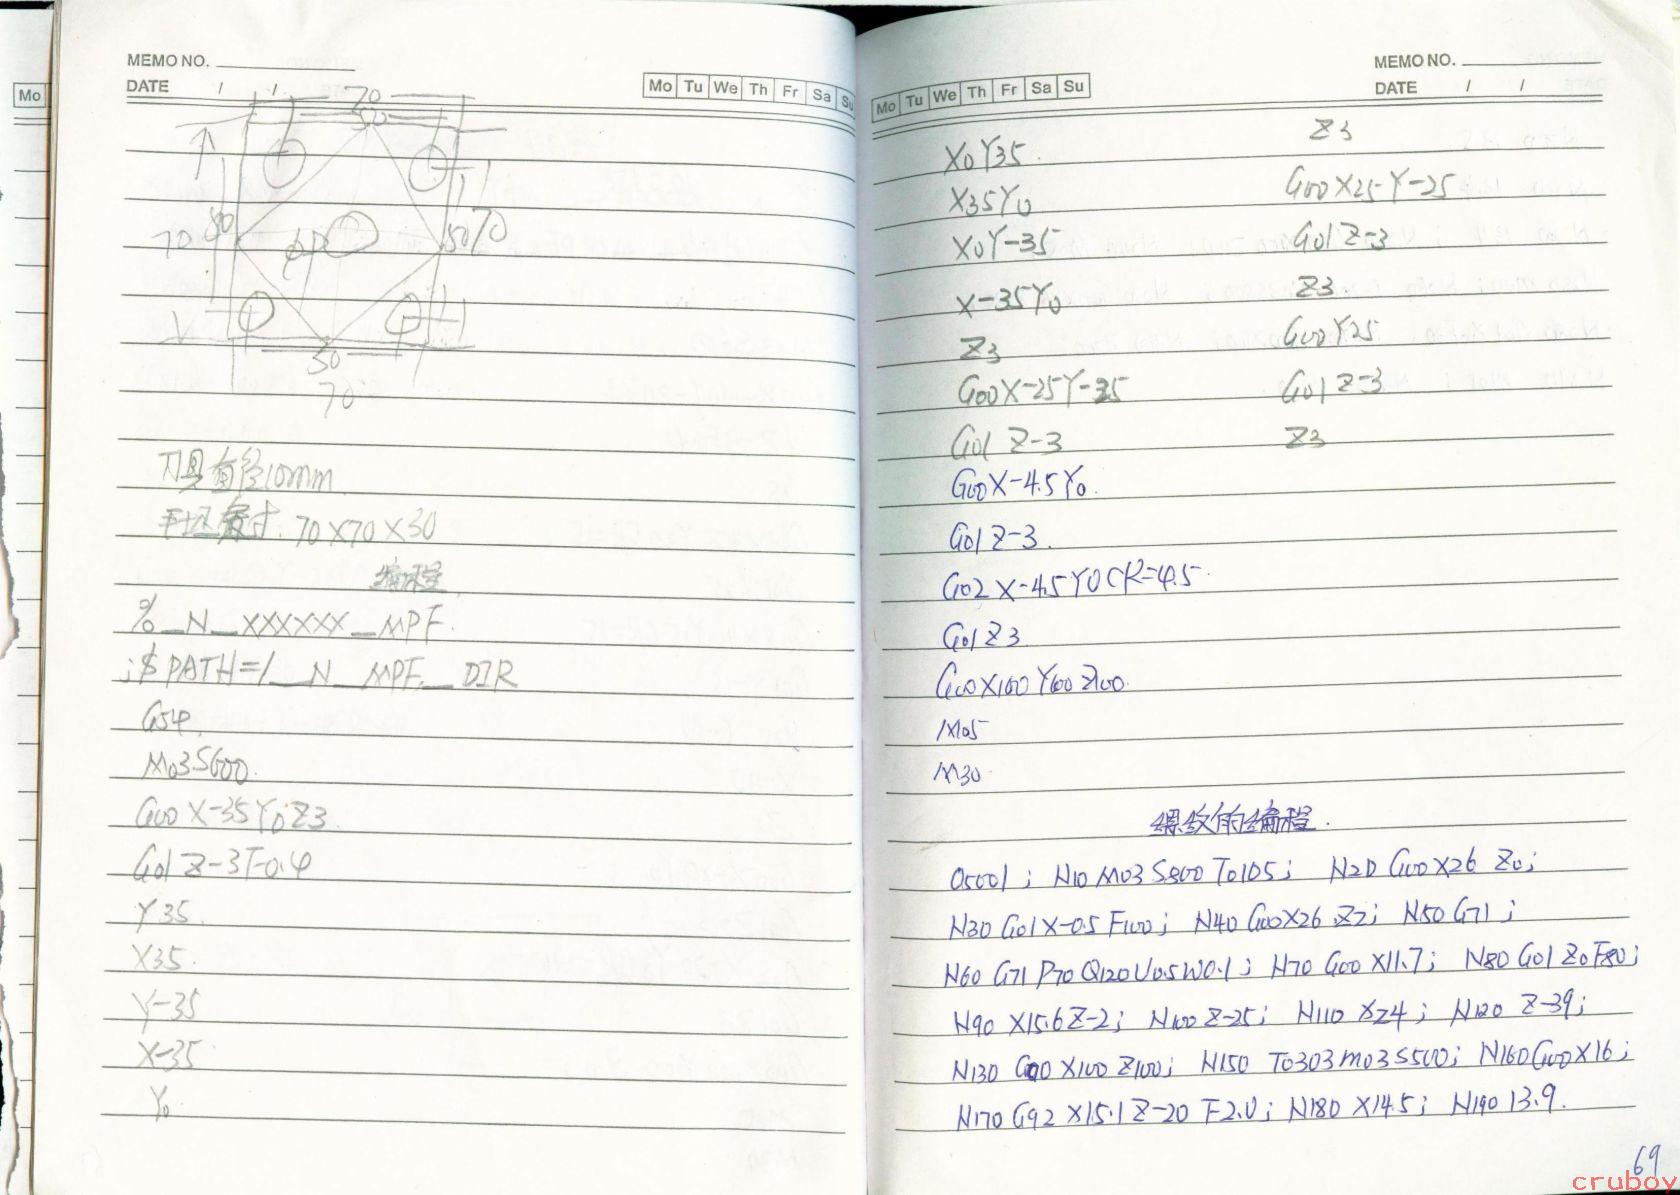 Mo
MEMO NO.
DATE / /
Mo Tu We Th Fr Sa Su
70
50
70 50 50 70
φP
50
70
刀具直径10mm
毛坯食寸:70X70X30
编程
%_N_XXXXXX_MPF
;$PATH=/_N_MPF_DIR
G54
M03S600
G00X-35Y0Z3
G01Z-3F0.4
Y35
X35
Y-35
X-35
Y0
MEMO NO.
DATE / /
Mo Tu We Th Fr Sa Su
X0Y35
X35Y0
X0Y-35
X-35Y0
Z3
G00X-25Y-25
G01Z-3
G00X-4.5Y0
G01Z-3
G02X-4.5Y0CR=4.5
G01Z3
G00X100Y100Z100
M05
M30
Z3
G00X25Y-25
G01Z-3
Z3
G00Y25
G01Z-3
Z3
螺纹的编程.
O5001; N10 M03 S800 T0105; N20 G00X26 Z0;
N30 G01X-0.5 F100; N40 G00X26 Z2; N50 G71;
N60 G71 P70 Q120 U0.5 W0.1; N70 G00 X11.7; N80 G01 Z0F80;
N90 X15.6Z-2; N100 Z-25; N110 XZ4; N120 Z-39;
N130 G00 X100 Z100; N150 T0303M03S500; N160G00X16;
N170 G92 X15.1Z-20 F2.0; N180 X14.5; N190 13.9.
69
cruboy